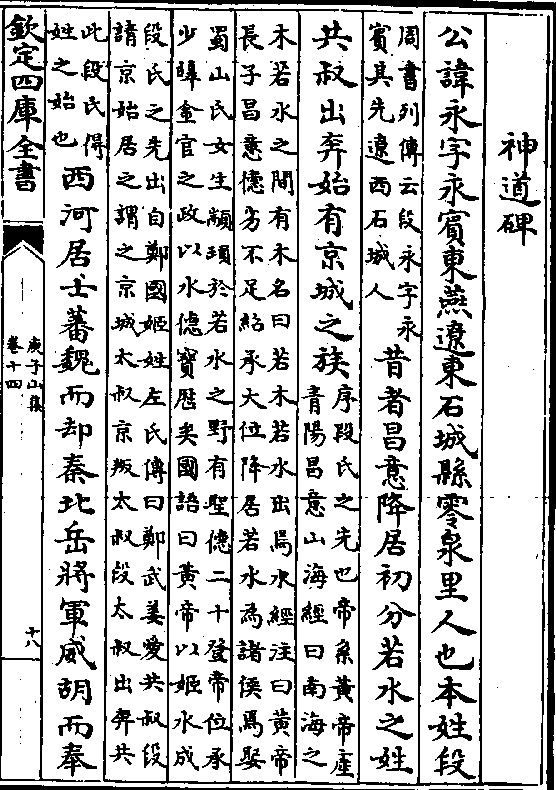 神道碑
公諱永字永賓東燕遼東石城縣零泉里人也本姓段
周書列傳云段永字永
賓其先遼西石城人
昔者昌意降居初分若水之姓
共叔出奔始有京城之族
序段氏之先也帝系黃帝産
青陽昌意山海經曰南海之
木若水之間有木名曰若木若水出焉水經注曰黃帝
長子昌意德劣不足紹承大位降居若水為諸侯焉娶
蜀山氏女生顓頊於若水之野有聖德二十登帝位承
少皥金官之政以水德寶厯矣國語曰黃帝以姬水成
段氏之先出自鄭國姬姓左氏傳曰鄭武姜愛共叔段
請京始居之謂之京城太叔京叛太叔段太叔出奔共
此段氏得
姓之始也
西河居士蕃魏而却秦北岳將軍威胡而奉
欽定四庫全書
庾子山集
卷十四
十八